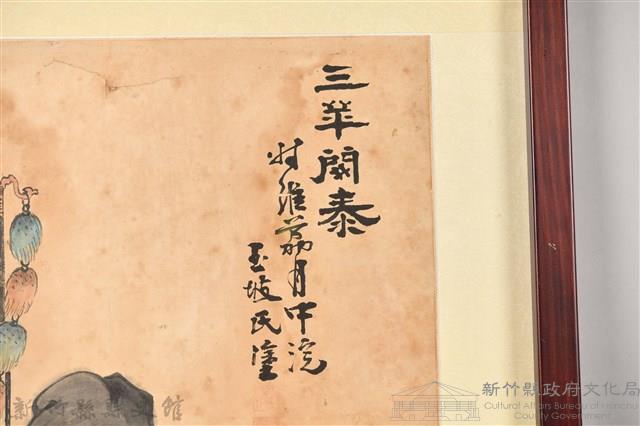 三羊開泰
時維荔月中浣
玉坡氏塗
新竹縣縣史館
新竹縣政府文化局
Cultural Affairs Bureau of Hsinchu
County Government